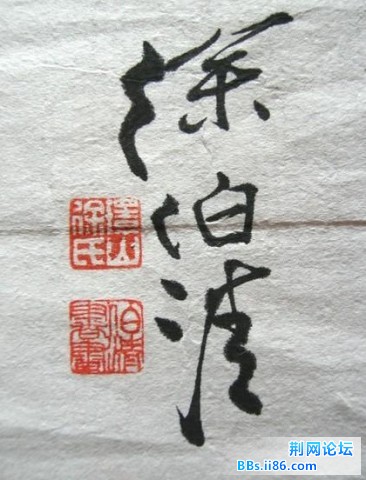 徐伯清
山徐氏
伯清書畫
荆网论坛
BBs.ii86.com